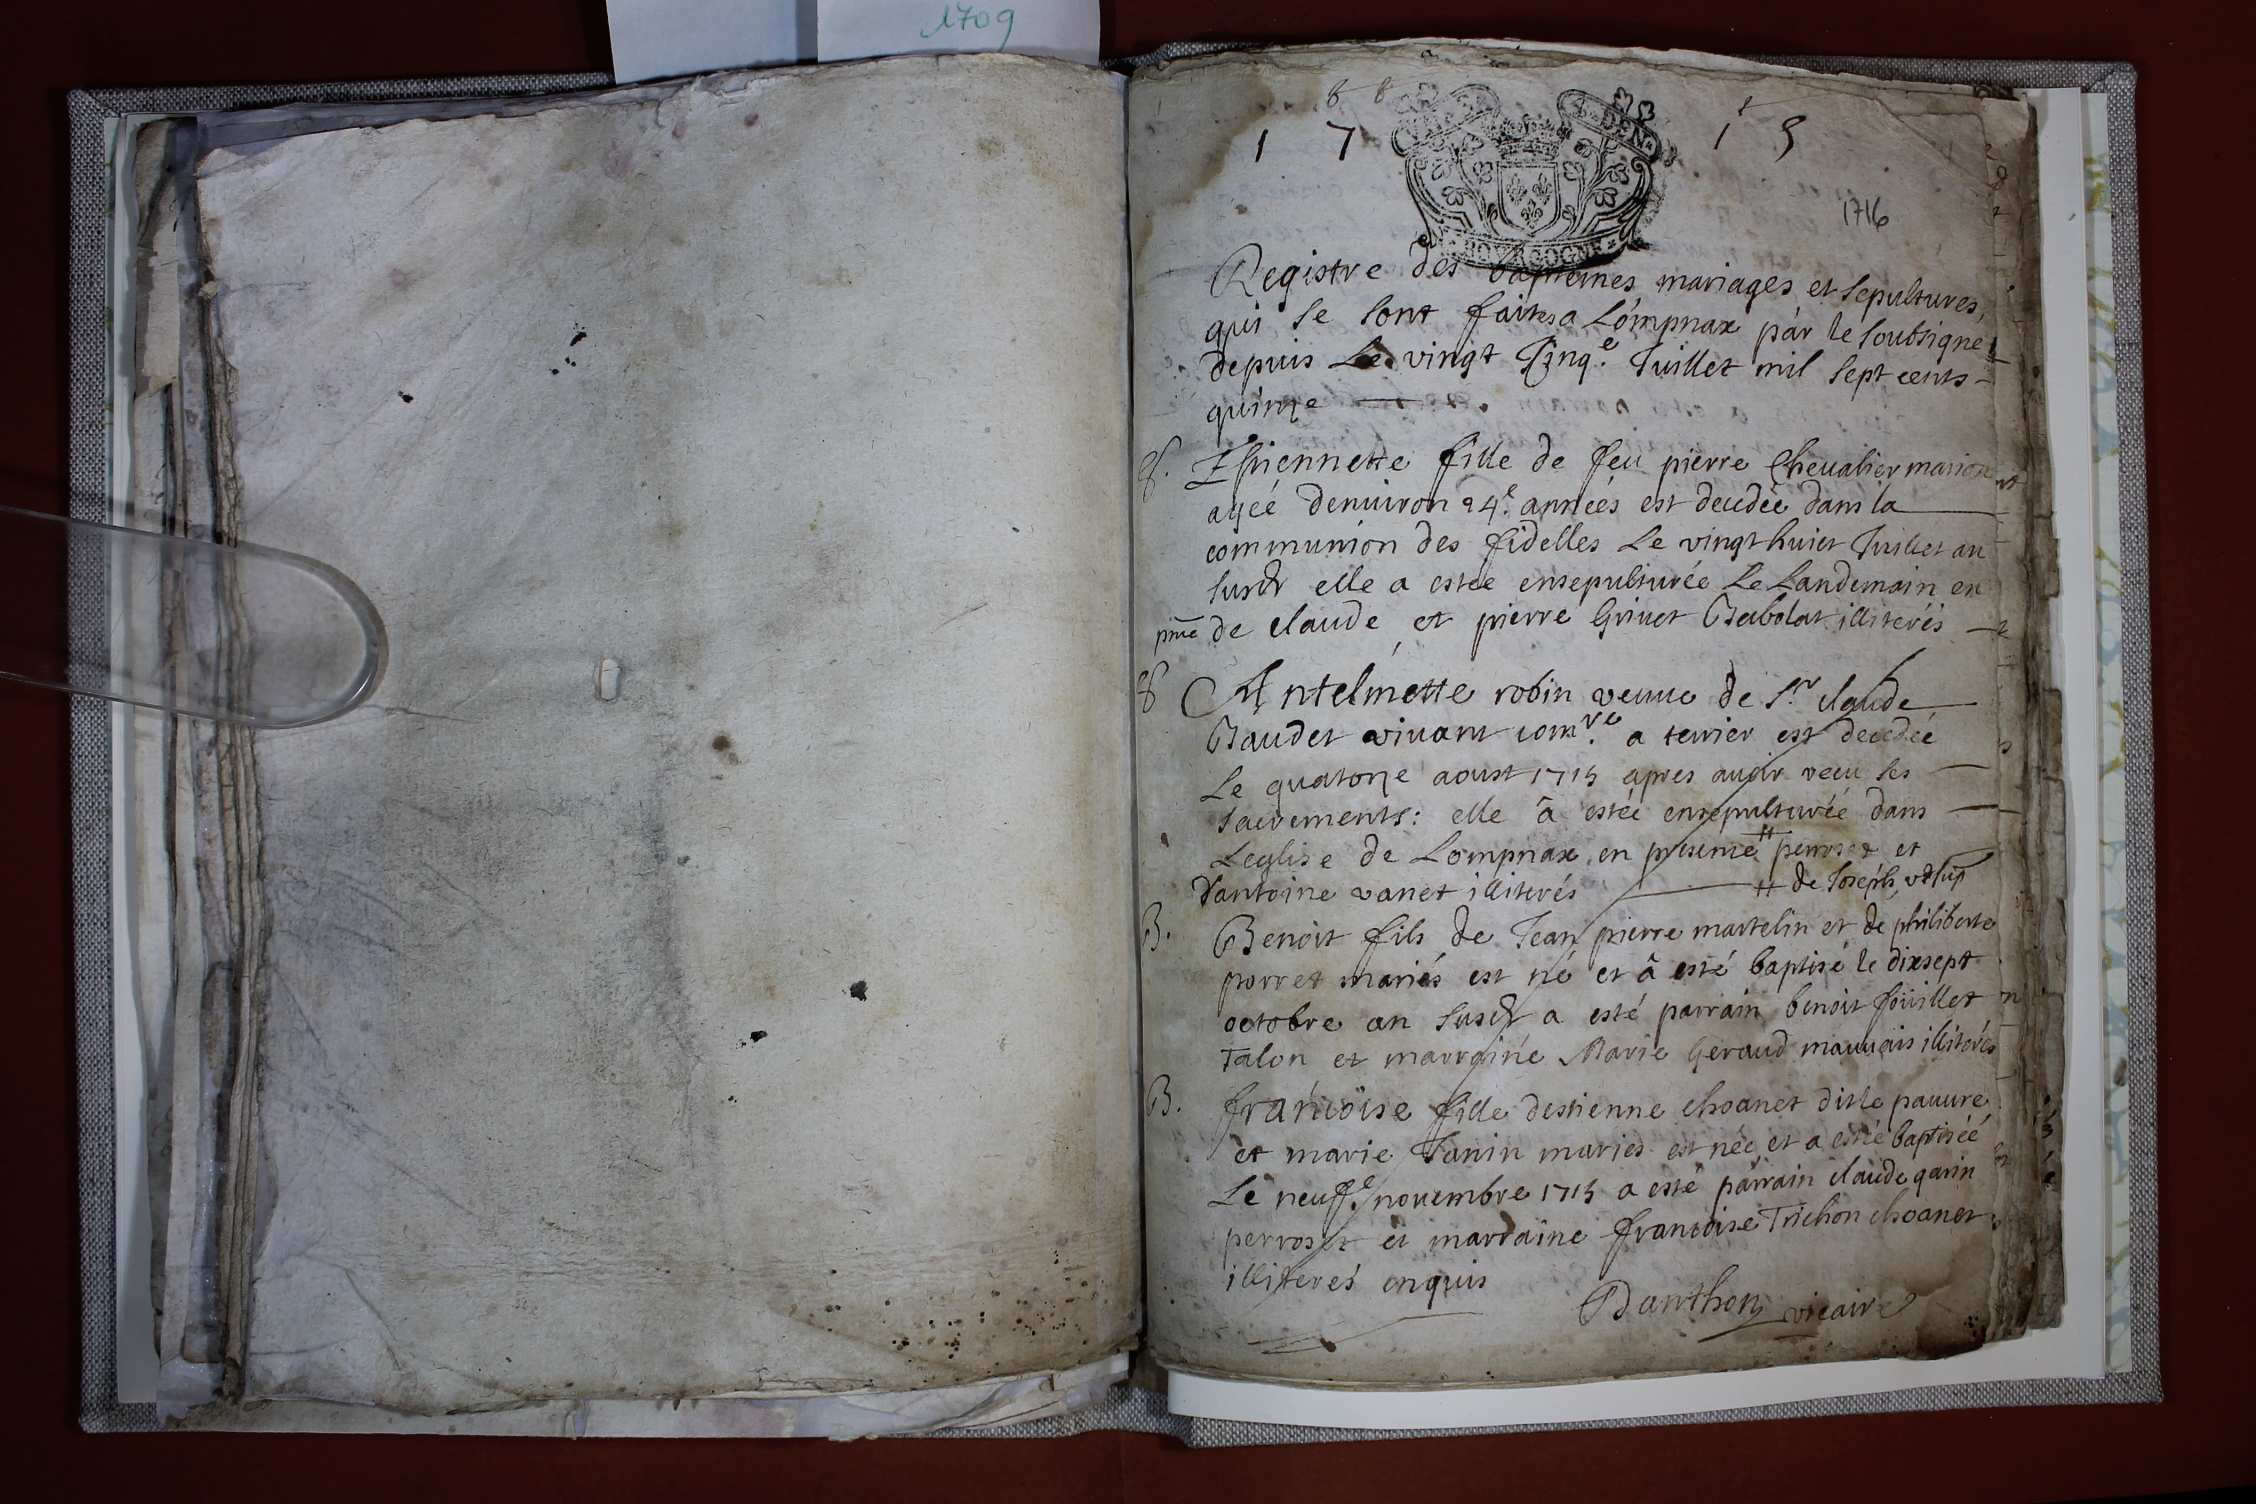 1709
1 7 1 5
4 DEN
BOURGOGNE
1716
Registre des baptemes mariages et sepultures,
qui se sont faites a Lompnax par le soubsigné
depuis Le vingt Cinq.e Juillet mil sept cents
quinze
S. Estiennette fille de feu pierre Chevalier marion
agéé denuiron 24.e annéés est decedéé dans la
communion des fidelles Le vingt huict Juillet an
susd elle a estéé ensepulturée Le Landemain en
pnce de claude et pierre Grinet Babolat illiterés
S Antelmette robin veuue de Sr claude
Baudet vivant comre a terrier est decedéé
Le quatorze aoust 1715 apres auoir receu ses
sacrements: elle â estéé ensepulturéé dans
Leglise de Lompnax en presence # perroset et
d'antoine vanet illiterés # de Joseph
B. Benoit fils de Jean pierre martelin et de philiberte
porret mariés est né et â esté baptisé le dixsept
octobre an susd a esté parrain benoit foüillet
Talon et marraine Marie Geraud mauuais illiterés
B. francoise fille destienne choanet dit le pauure
et marie Janin mariés est néé et a estéé baptiséé
Le neuff.e novembre 1715 a esté parrain claude garin
perroset et marraine francoise Trichon choanet
illiterés enquis
Danthon vicaire